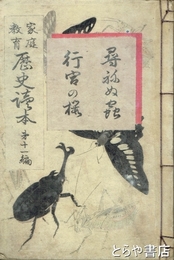 家庭
教育
歴史讀本
第十一編
尋ねぬ蟲
行宮の櫻
とらや書店